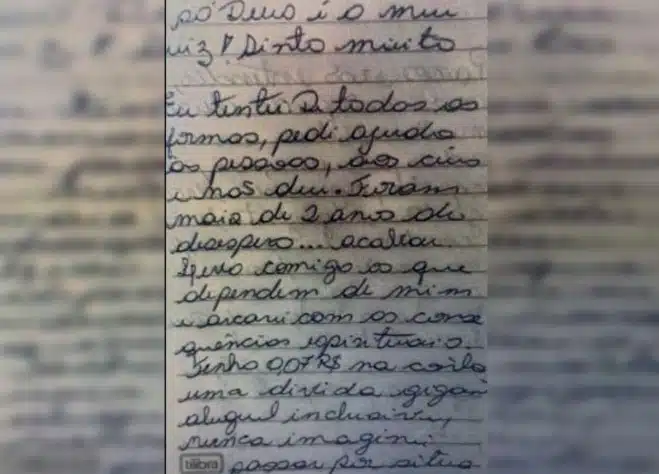 só Deus é o meu
uiz! Sinto muito
Eu tentei D todos as
formas, pedi ajuda
às pessoas, aos céus
e nos deu. Foram
mais de 2 anos de
desespero... acabou.
Levo comigo os que
dependem de mim
e arcarei com as conse
quências espirituais.
Tenho 0,07 R$ na conta
uma divida gigan
aluguel inclusive,
nunca imaginei
passar por situa
tilibra